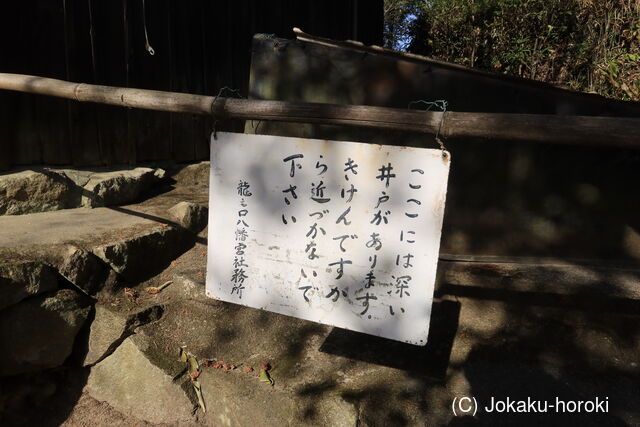 ここには深い
井戸があります。
きけんですか
ら近づかないで
下さい
龍之口八幡宮社務所
(C) Jokaku-horoki